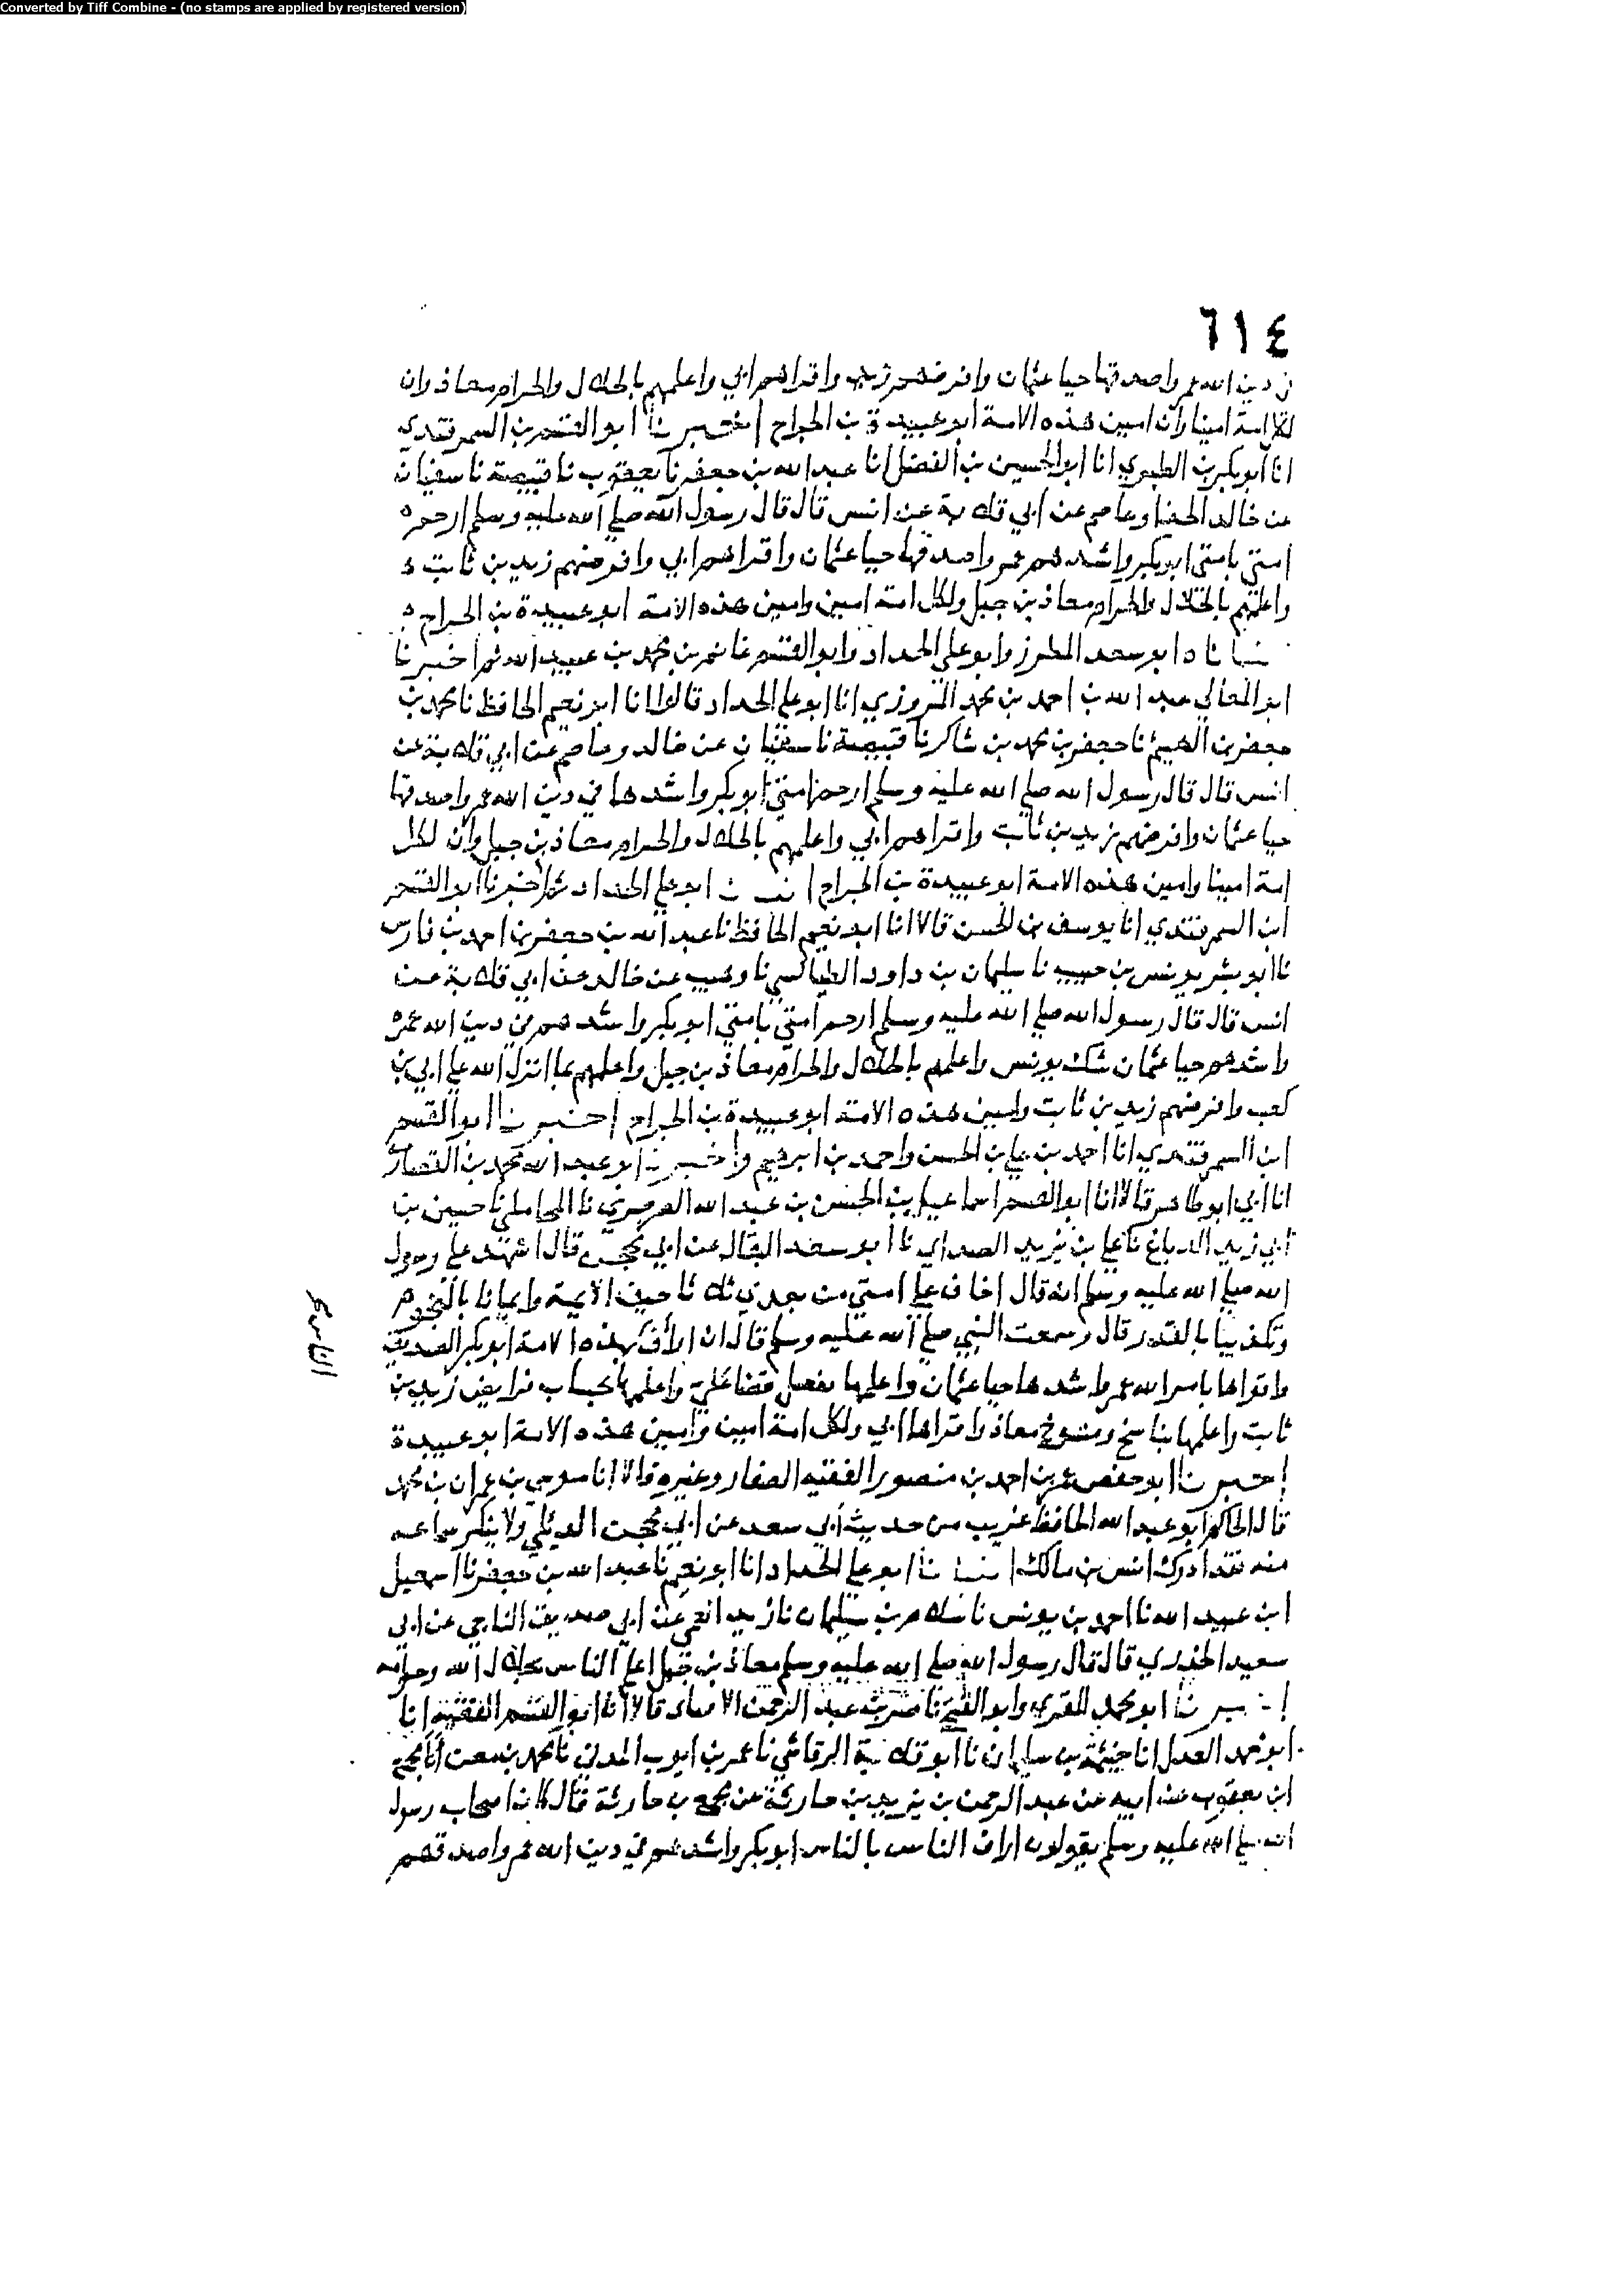 Converted by Tiff Combine - (no stamps are applied by registered version)
٦١٤
في دين الله عمر واصدقها حيا عثمان وافرضهم زيد واقراهم ابي واعلمهم بالحلال والحرام معاذ وان
لكل امة امينا وان امين هذه الامة ابو عبيدة بن الجراح اخبرنا ابو القسم بن السمرقندي
انا ابو بكر بن الطبري انا ابو الحسين بن الفضل انا عبد الله بن جعفر نا يعقوب نا قبيصة نا سفيان
عن خالد الحذا وعاصم عن ابي قلابة عن انس قال قال رسول الله صلى الله عليه وسلم ارحم
امتي بامتي ابو بكر واشدهم عمر واصدقها حيا عثمان واقراهم ابي وافرضهم زيد بن ثابت
واعلمهم بالحلال والحرام معاذ بن جبل ولكل امة امين وامين هذه الامة ابو عبيدة بن الجراح
ابو سعد المطرز وابو علي الحداد وابو القسم غانم بن محمد بن عبيد الله ثم اخبرنا
ابو المعالي عبد الله بن احمد بن محمد المروزي انا ابو علي الحداد قالوا انا ابو نعيم الحافظ نا محمد بن
جعفر بن الهيثم نا جعفر بن محمد بن شاكر نا قبيصة نا سفيان عن خالد وعاصم عن ابي قلابة عن
انس قال قال رسول الله صلى الله عليه وسلم ارحم امتي ابو بكر واشدها في دين الله عمر واصدقها
حيا عثمان وافرضهم زيد بن ثابت واقراهم ابي واعلمهم بالحلال والحرام معاذ بن جبل وان لكل
امة امينا وامين هذه الامة ابو عبيدة بن الجراح ابو علي الحداد ثم اخبرنا ابو القسم
ابن السمرقندي انا يوسف بن الحسن قالا انا ابو نعيم الحافظ نا عبد الله بن جعفر بن احمد بن فارس
نا ابو بشر يونس بن حبيب نا سليمان بن داود الطيالسي نا وهيب عن خالد عن ابي قلابة عن
انس قال قال رسول الله صلى الله عليه وسلم ارحم امتي بامتي ابو بكر واشدهم في دين الله عمر
واشدهم حيا عثمان شك يونس واعلمهم بالحلال والحرام معاذ بن جبل واعلمهم بما انزل الله علي ابي بن
كعب وافرضهم زيد بن ثابت وامين هذه الامة ابو عبيدة بن الجراح اخبرنا ابو القسم
ابن السمرقندي انا احمد بن علي بن الحسن واحمد بن ابرهيم واخبرنا ابو عبد الله محمد بن القصاري
انا ابي ابو طاهر قالا انا ابو القسم اسماعيل بن الحسن بن عبد الله الصرصري نا المحاملي نا حسين بن
ابي زيد الدباغ نا علي بن يزيد الصداي نا ابو سعد البقال عن ابي محجن قال اشهد علي رسول
الله صلى الله عليه وسلم انه قال اخاف علي امتي من بعدي ثلاثا حيف الايمة وايمانا بالنجوم
وتكذيبا بالقدر قال وسمعت النبي صلى الله عليه وسلم قال ان ارأف بهذه الامة ابو بكر الصديق
واقواها بامر الله عمر واشدها حيا عثمان واعلمها بفصل قضا علي واعلمها بحساب فرايض زيد بن
ثابت واعلمها بناسخ ومنسوخ معاذ واقراها ابي ولكل امة امين وامين هذه الامة ابو عبيدة
اخبرنا ابو حفص عمر بن احمد بن منصور الفقيه الصفار وغيره قالا انا موسى بن عمران بن محمد
قال الحاكم ابو عبد الله الحافظ غريب من حديث ابي سعد عن ابي محجن الديلي ولا ينكر سماعه
منه فقد ادرك انس بن مالك ابو علي الحداد انا ابو نعيم نا عبد الله بن جعفر نا اسمعيل
ابن عبيد الله نا احمد بن يونس نا سلام بن سليمان نا زيد العمي عن ابي صديق الناجي عن ابي
سعيد الخدري قال قال رسول الله صلى الله عليه وسلم معاذ بن جبل اعلم الناس بحلال الله وحرامه
اخبرنا ابو محمد المقري وابو الفتح ناصر بن عبد الرحمن قالا انا ابو القسم الفقيه انا
ابو محمد العدل انا خيثمة بن سليمان نا ابو قلابة الرقاشي نا عمر بن ايوب المدني نا محمد بن معن انا مجمع
ابن يعقوب عن ابيه عن عبد الرحمن بن يزيد بن حارثة عن مجمع بن حارثة قال كان اصحاب رسول
الله صلى الله عليه وسلم يقولون اراف الناس بالناس ابو بكر واشدهم في دين الله عمر واصدقهم